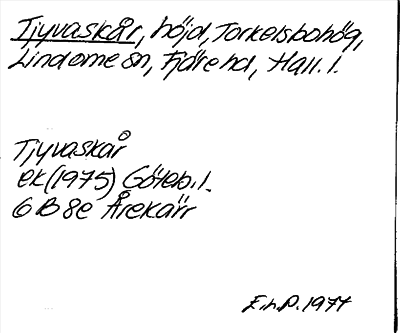 Tjyvaskår, höjd, Torkelsbohög,
Lindome sn, Fjäre hd, Hall. l.
Tjyvaskår
ek (1975) Göteb. l.
6 B 8e Årekärr
E.h.P. 1977